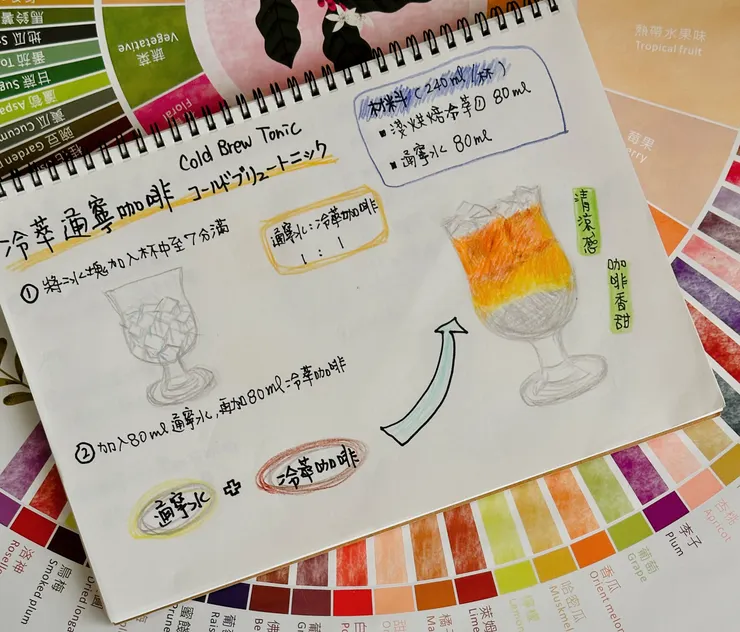 Cold Brew Tonic
冷萃通寧咖啡 コールドブリュートニック
材料 (240ml/杯)
▪ 淺烘焙冷萃① 80ml
▪ 通寧水 80ml
通寧水:冷萃咖啡
1 : 1
① 將冰塊加入杯中至7分滿
清涼感
咖啡香甜
② 加入80ml通寧水,再加80ml冷萃咖啡
通寧水 + 冷萃咖啡
馬鈴薯
地瓜
番茄
甘蔗
蘆筍
黃瓜
豌豆 Garden
蔬菜
Vegetative
Floral
熱帶水果味
Tropical fruit
莓果
洛神
Roselle
烏梅
Smoked plum
檸檬
哈密瓜
香瓜
Orient melon
葡萄
Grape
李子
Plum
杏桃
Apricot